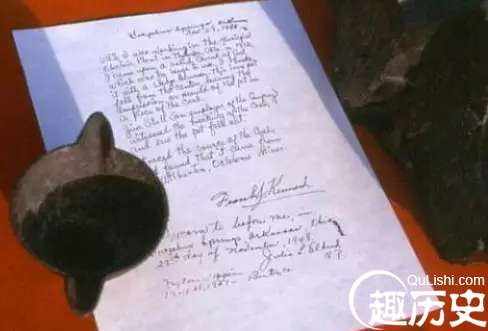 Sulphur Springs, Ark
Nov. 27, 1948
While I was working in the Municipal
Electric Plant in Thomas, Okla. in 1912,
I came upon a solid chunk of coal
which was too large to use. I broke
it with a sledge hammer. This iron pot
fell from the center, leaving the
impression or mould of the pot in
a piece of the coal.
Jim Stall (an employee of the Company)
witnessed the breaking of the coal,
and saw the pot fall out.
I traced the source of the coal,
and found that it came from
Wilburton, Oklahoma Mines.
Frank J. Kennard
Sworn to before me, in
Sulphur Springs, Arkansas, this
27th day of November, 1948.
Julia L. Eldred
N.P.
QuLishi.com
趣历史